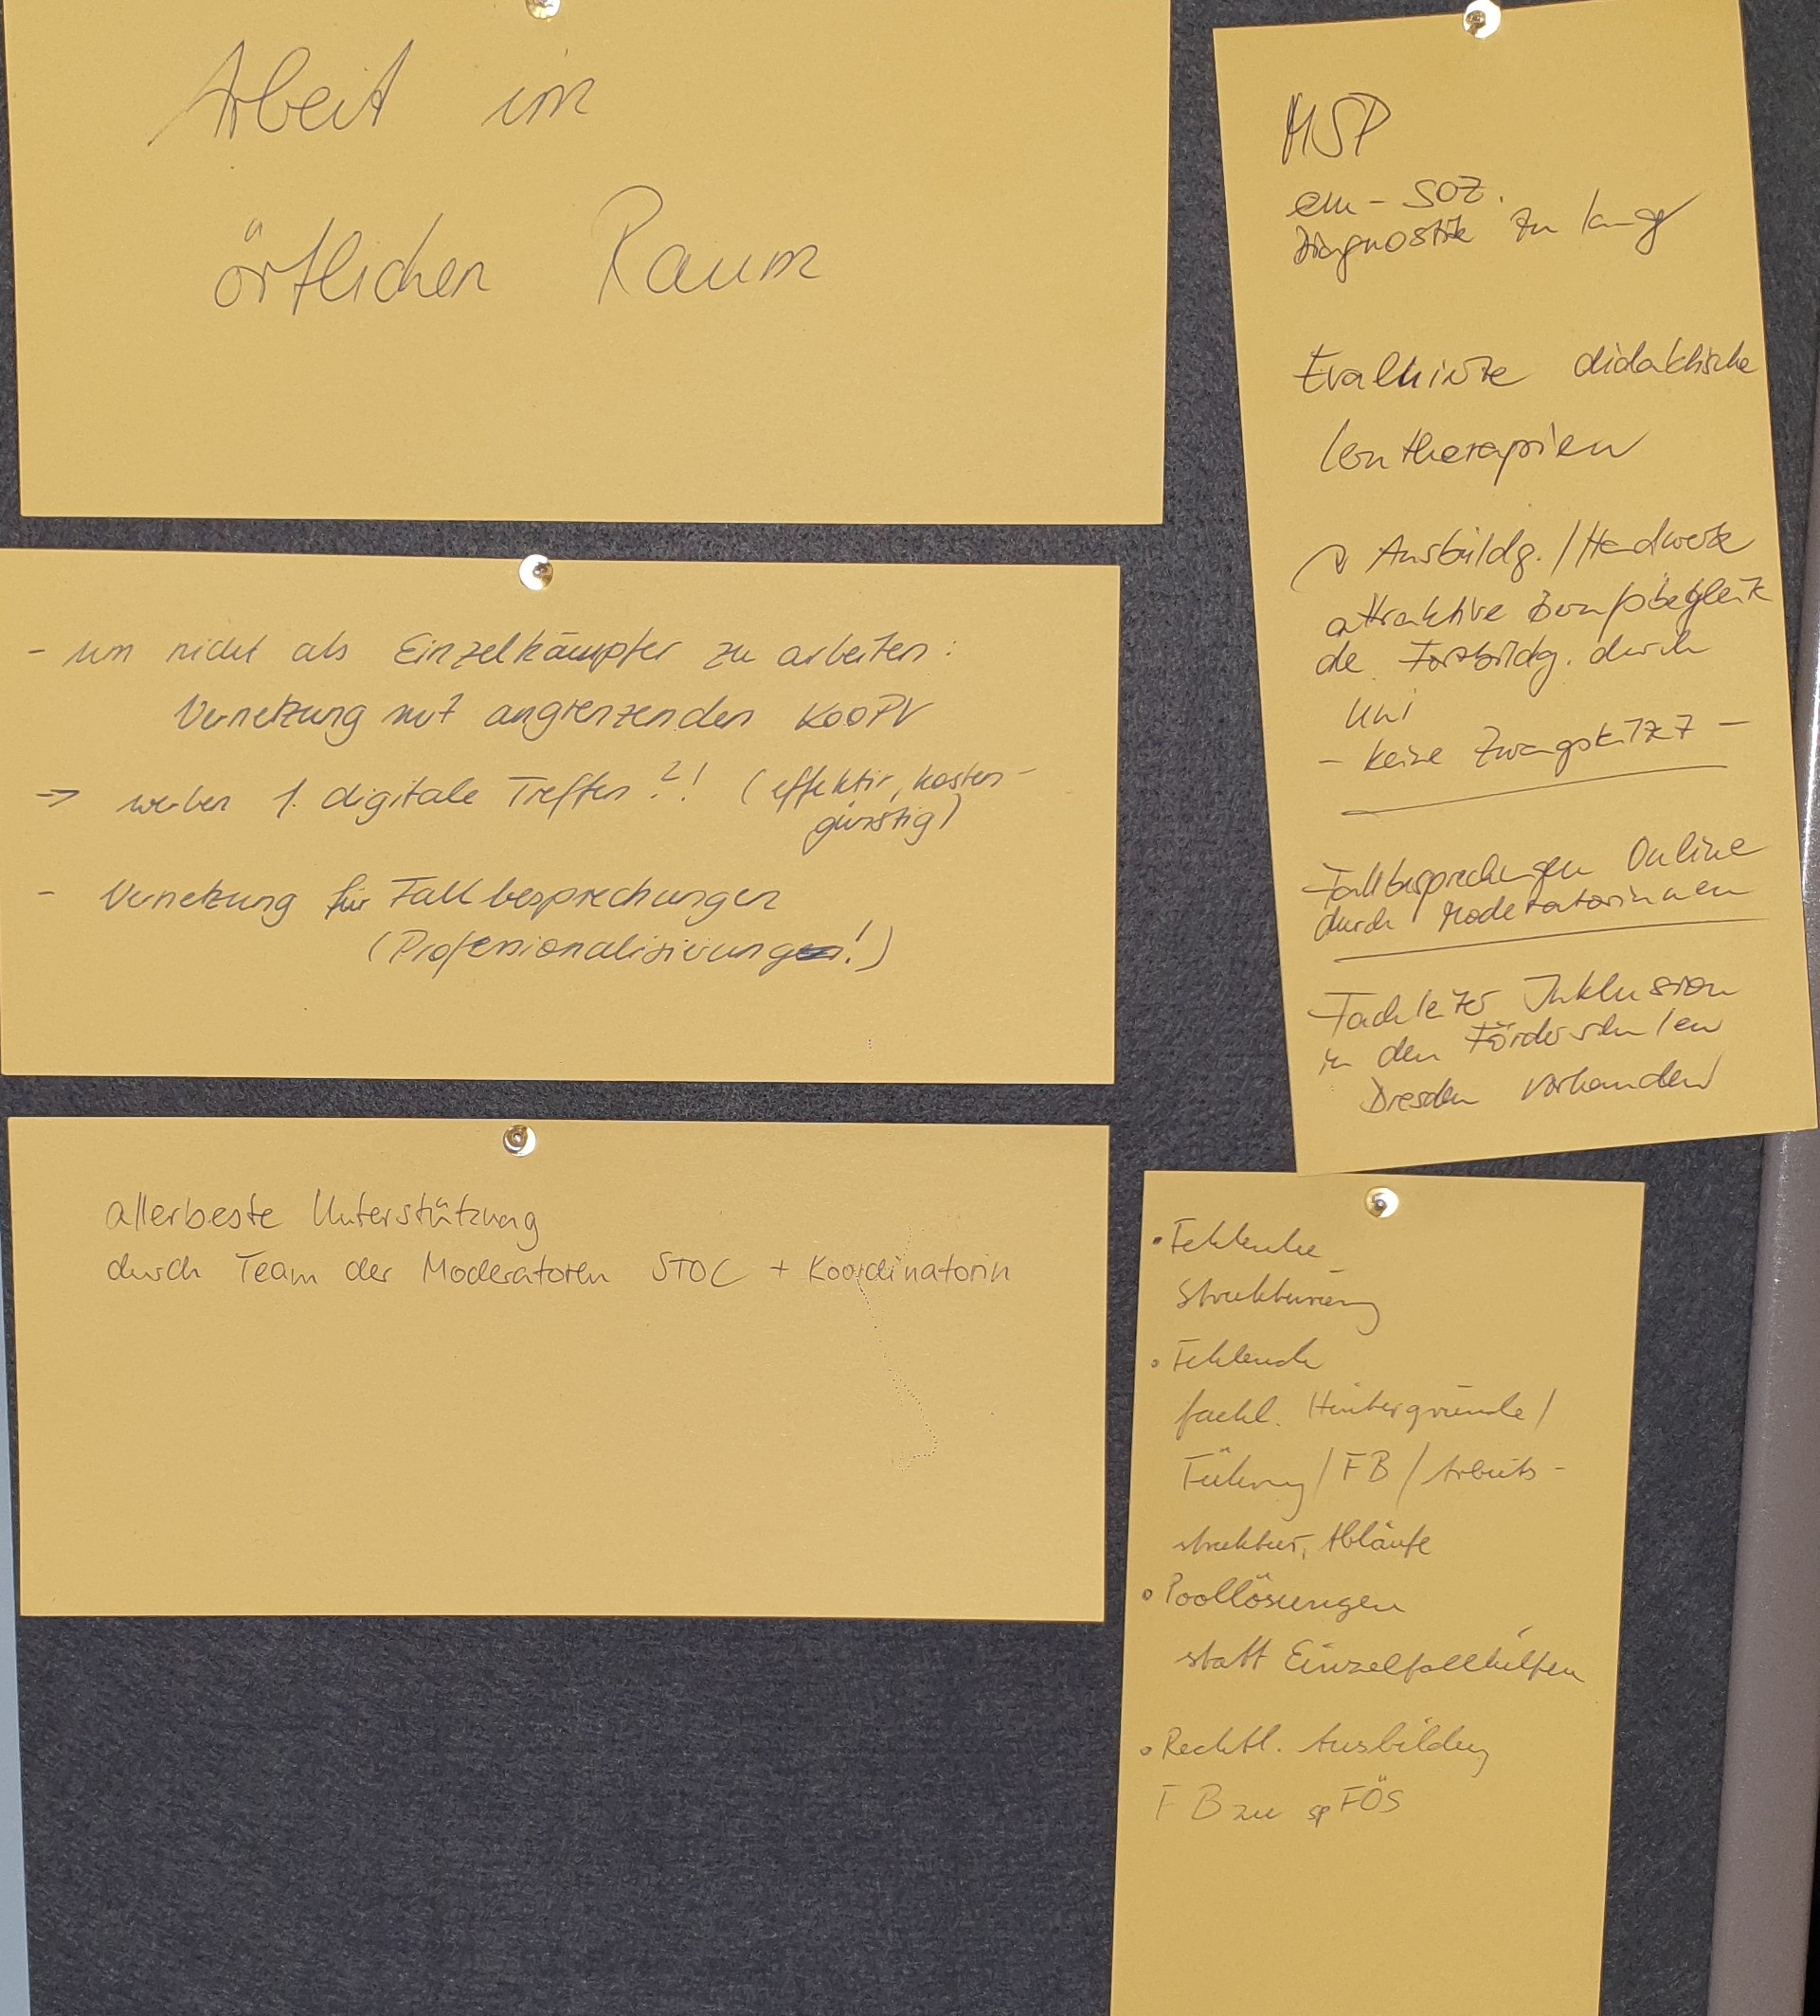 Arbeit im
örtlichen Raum
- um nicht als Einzelkämpfer zu arbeiten:
Vernetzung mit angrenzenden KooPV
⇒ 1. digitale Treffen?! (effektiv, kosten-
günstig)
- Vernetzung für Fallbesprechungen
(Professionalisierung!)
allerbeste Unterstützung
durch Team der Moderatoren STOC + Koordinatorin
MSP
em-soz.
Diagnostik zu lang
didaktische
Lerntherapien
Ausbildg. / Handwerk
attraktive Berufsbegleit
de Fortbildg. durch
Uni
- keine -
Fallbesprechungen Online
durch Moderatorinnen
Inklusion
in den Förderschulen
Dresden vorhanden
• Fehlende
Strukturierung
• Fehlende
fachl. Hintergründe /
Führung / FB / Arbeits-
struktur, Abläufe
• Poollösungen
statt Einzelfallhilfen
• Rechtl. Ausbildung
FB zu spFÖS